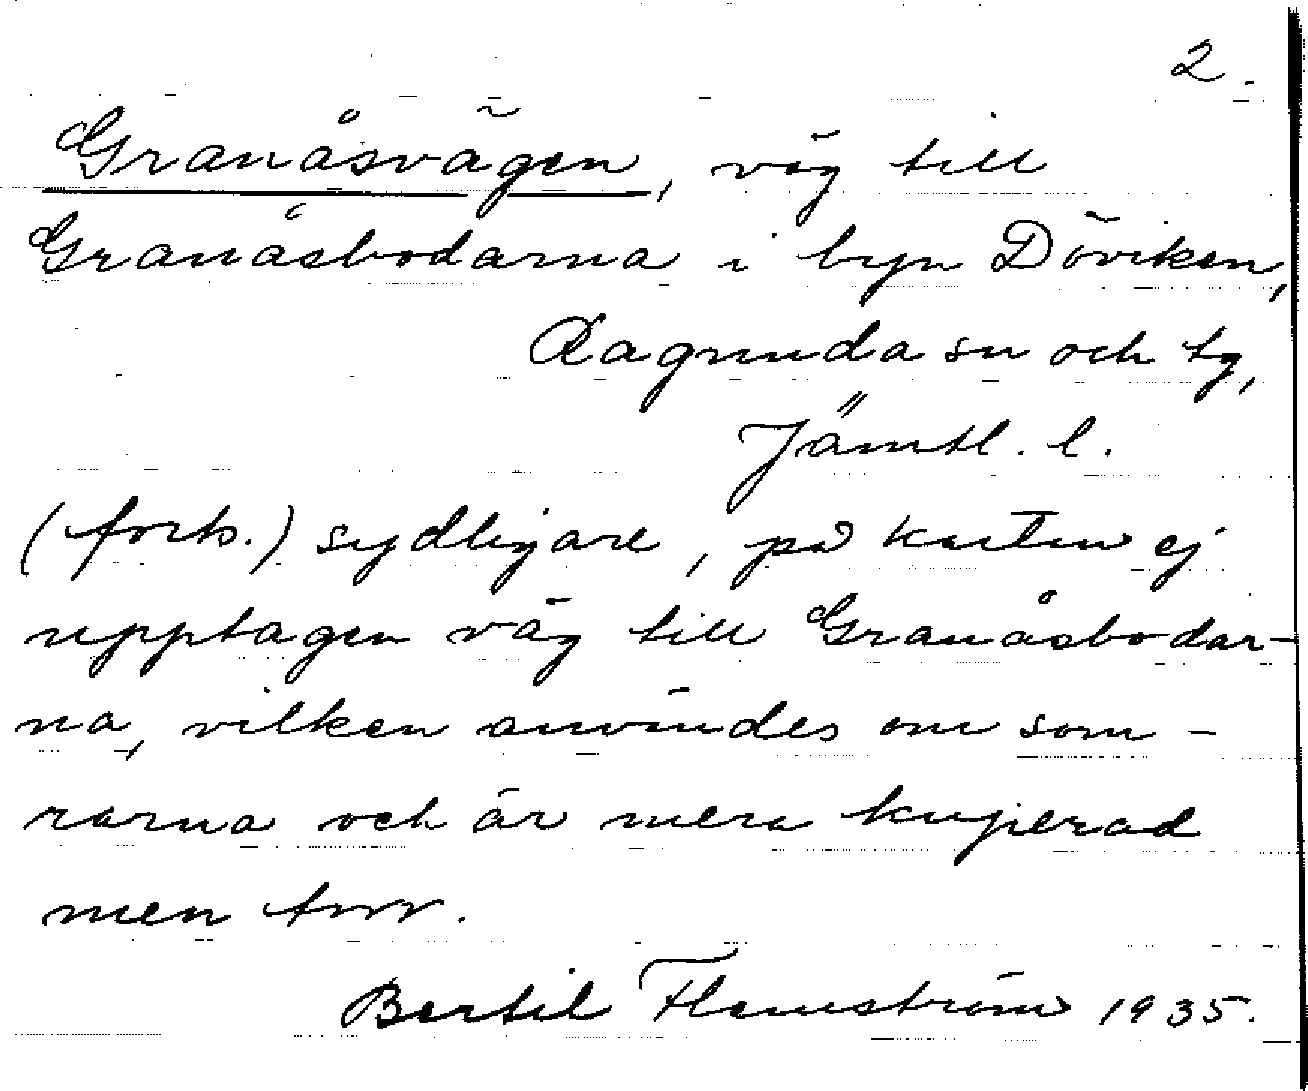 2.
Granåsvägen, väg till
Granåsbodarna i byn Döviken,
Ragunda sn och tg,
Jämtl. l.
(forts.) sydligare, på kartan ej
upptagen väg till Granåsbodar-
na, vilken användes om som-
rarna och är mera kuperad
men torr.
Bertil Flemström 1935.